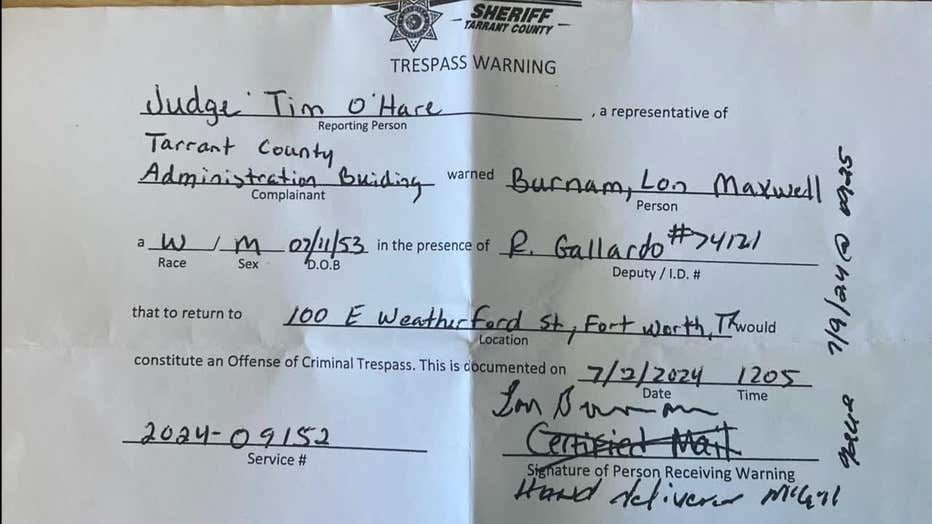 SHERIFF
TARRANT COUNTY
TRESPASS WARNING
Judge Tim O'Hare , a representative of
Reporting Person
Tarrant County
Administration Buiding warned Burnam, Lon Maxwell
Complainant Person
a W / M 07/11/53 in the presence of R. Gallardo #74121
Race Sex D.O.B Deputy / I.D. #
that to return to 100 E Weatherford St, Fort Worth, TX would
Location
constitute an Offense of Criminal Trespass. This is documented on 7/2/2024 1205
Date Time
Lon Burnam
2024-09152 Certified Mail
Service # Signature of Person Receiving Warning
Hand deliverer
7/9/24 @ 0925